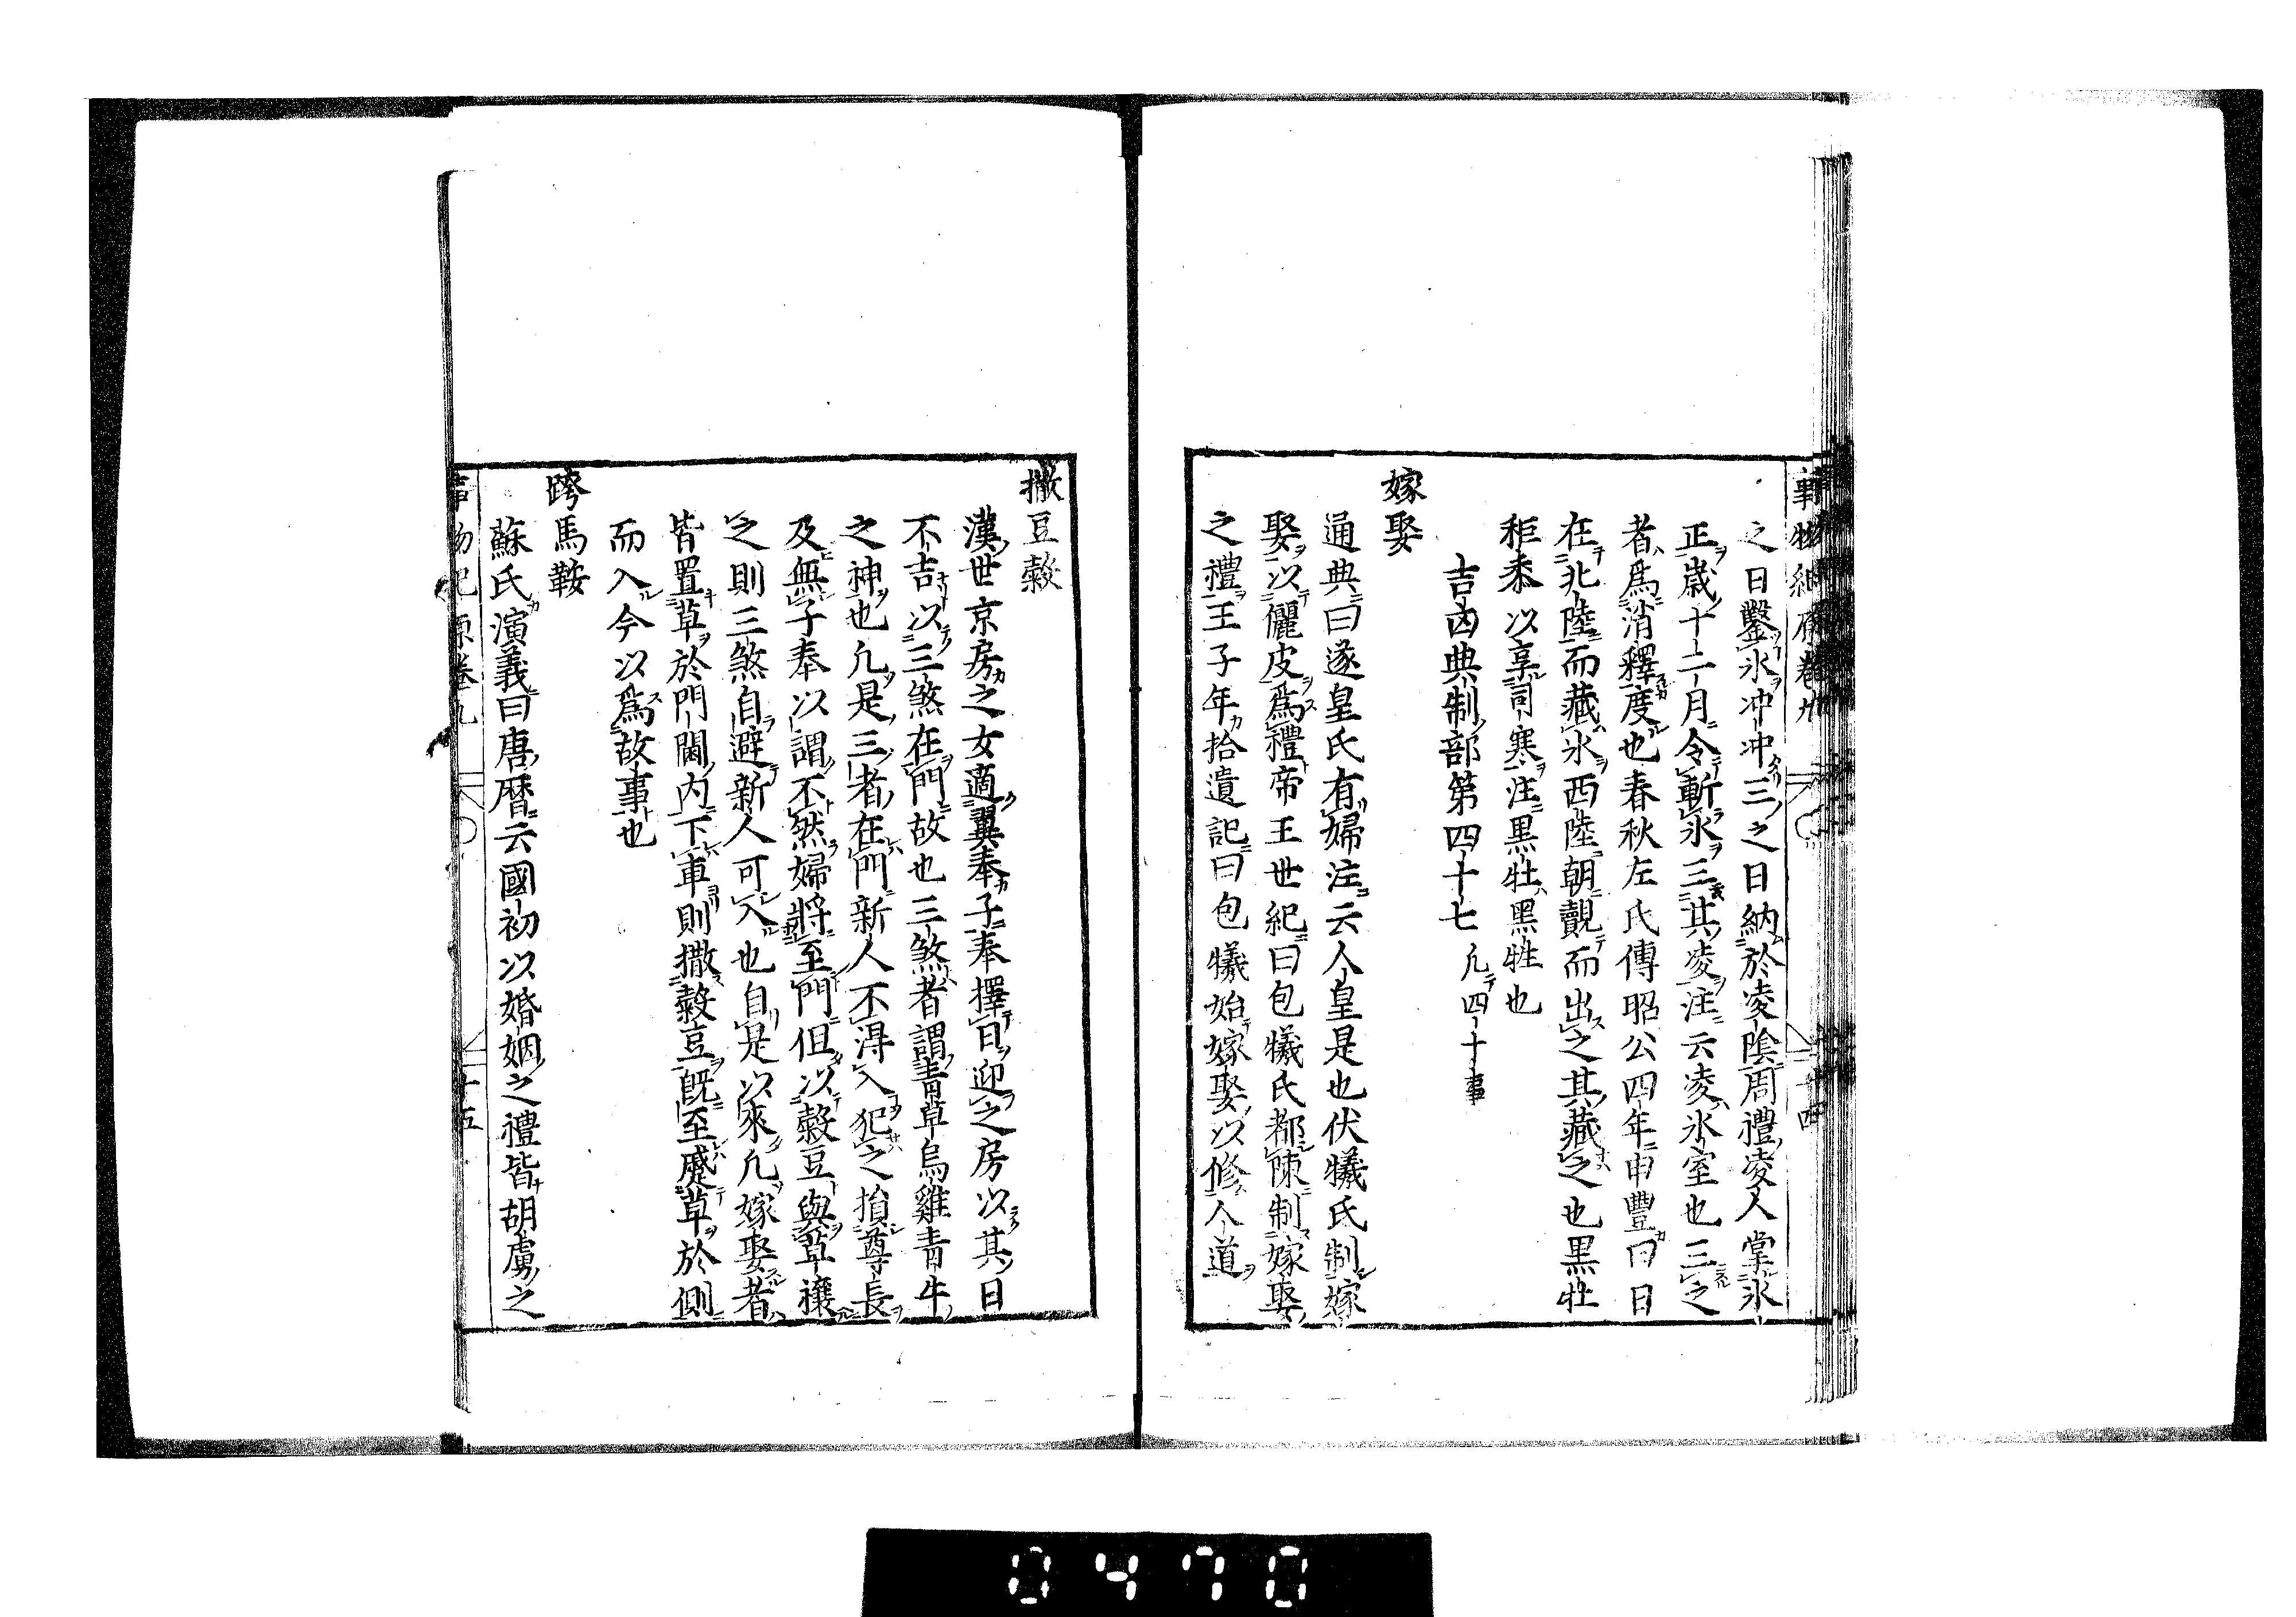 事物紀原卷九 十四
之日鑿氷冲冲三之日納於凌陰周禮凌人掌氷
正歳十二月令斬氷三其凌注云凌氷室也三之
者爲消釋度也春秋左氏傳昭公四年申豐曰日
在北陸而藏氷西陸朝覿而出之其藏之也黒牡
秬黍以享司寒注黒牡黒牲也
吉凶典制部第四十七 凢四十事
嫁娶
通典曰遂皇氏有婦注云人皇是也伏犧氏制嫁
娶以儷皮爲禮帝王世紀曰包犧氏都陳制嫁娶
之禮王子年拾遺記曰包犧始嫁娶以修人道
撒豆穀
漢世京房之女適翼奉子奉擇日迎之房以其日
不吉以三煞在門故也三煞者謂青草烏雞青牛
之神也凢是三者在門新人不淂入犯之損尊長
及無子奉以謂不然婦將至門但以穀豆與草禳
之則三煞自避新人可入也自是以來凢嫁娶者
皆置草於門閫内下車則撒穀豆既至蹙草於側
而入今以爲故事也
跨馬鞍
蘇氏演義曰唐暦云國初以婚姻之禮皆胡虜之
事物紀原卷九 十五
0470